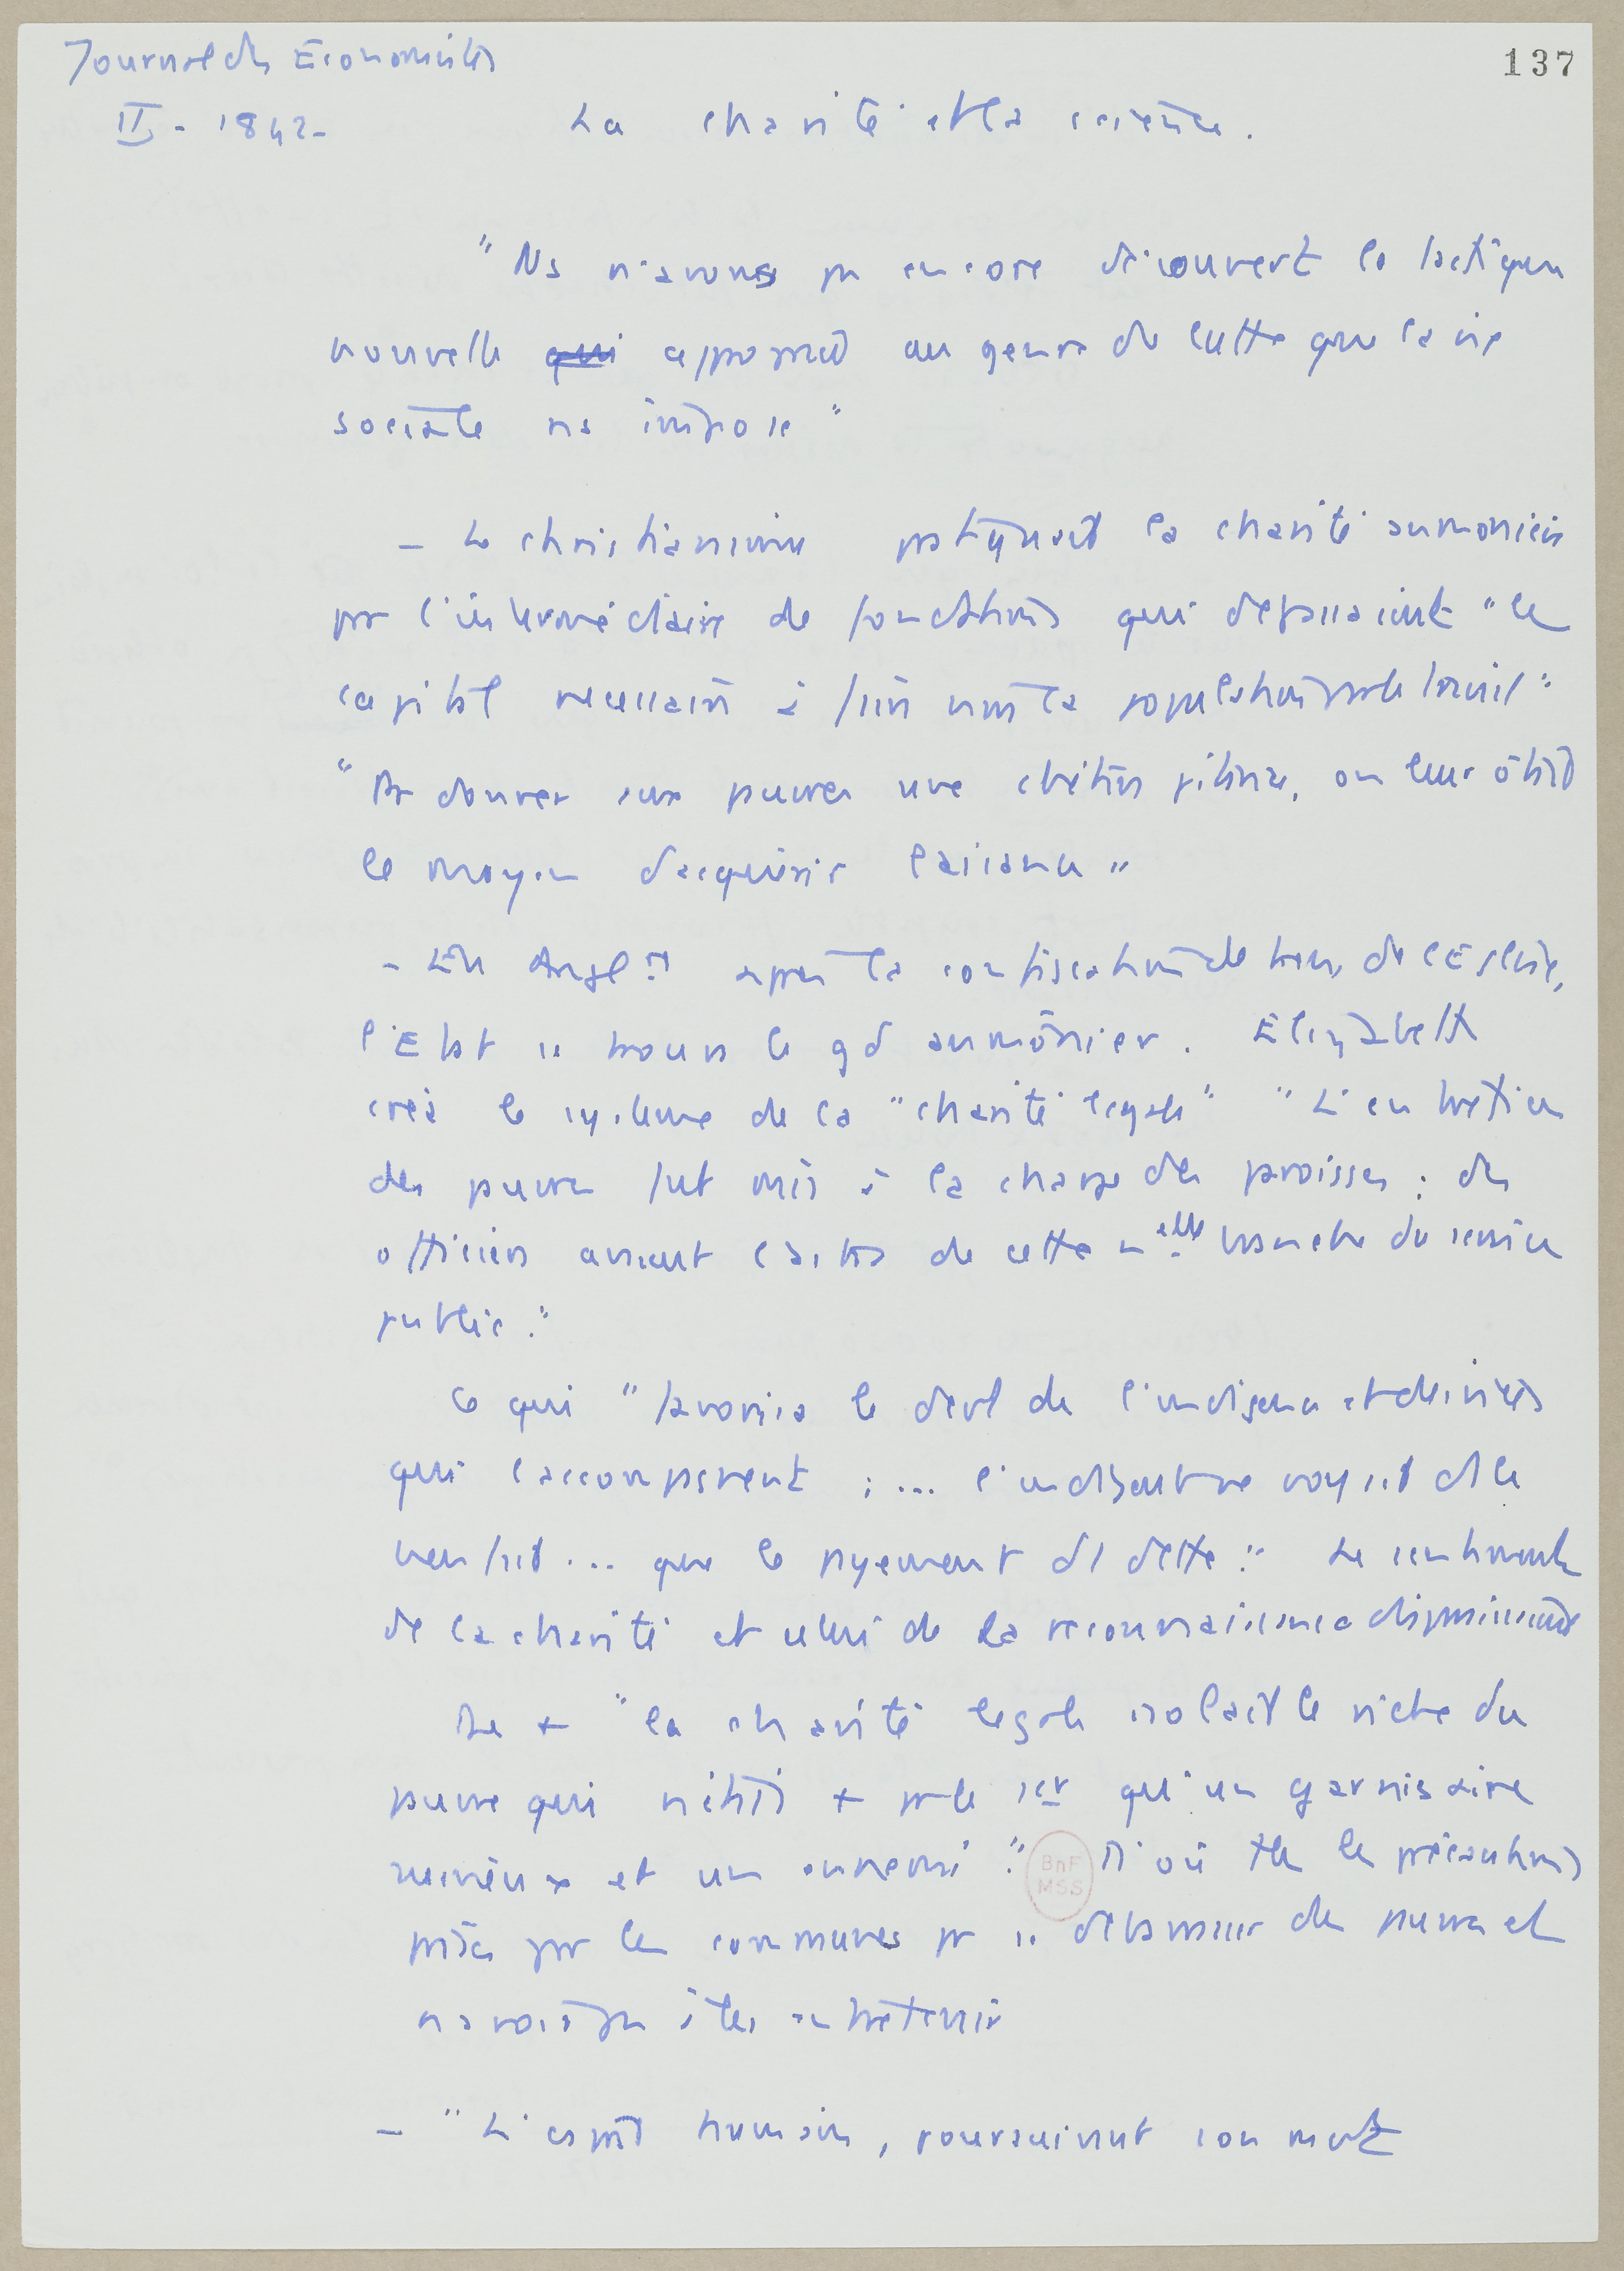 Journal des Économistes
137
II - 1842 -
La charité et la science.
"Ns n'avons pas encore découvert la tactique
nouvelle qui approprié au genre de lutte que la vie
sociale ns impose"
- Le christianisme pratiquait la charité aumonière
par l'intermédiaire de fondations qui dépassaient "le
capital necessaire à faire vivre la population par le travail"
"Par donner aux pauvres une chétive pitance, on leur ôtait
le moyen d'acquérir l'aisance"
- En Anglre après la confiscation des biens de l'Église,
l'Etat se trouva le gd aumônier. Elizabeth
créa le système de la "charité légale" "L'entretien
des pauvres fut mis à la charge des paroisses ; des
officiers avaient de cette nelle branche du service
public."
Ce qui "favorisa le devt de l'indigence et des vices
qui l'accompagnent ; ... l'indigent ne voyait ds le
bienfait ... que le payement d'1 dette." Le sentiment
de la charité et celui de la reconnaissance disparaissaient
De + "la charité légale isolait le riche du
pauvre qui n'était + pr le 1er qu'un garnisaire
ruineux et un ennemi." D'où ttes les précautions
prises par les communes pr se débarrasser des pauvres et
n'avoir pas à les entretenir
- "L'esprit humain, poursuivant son